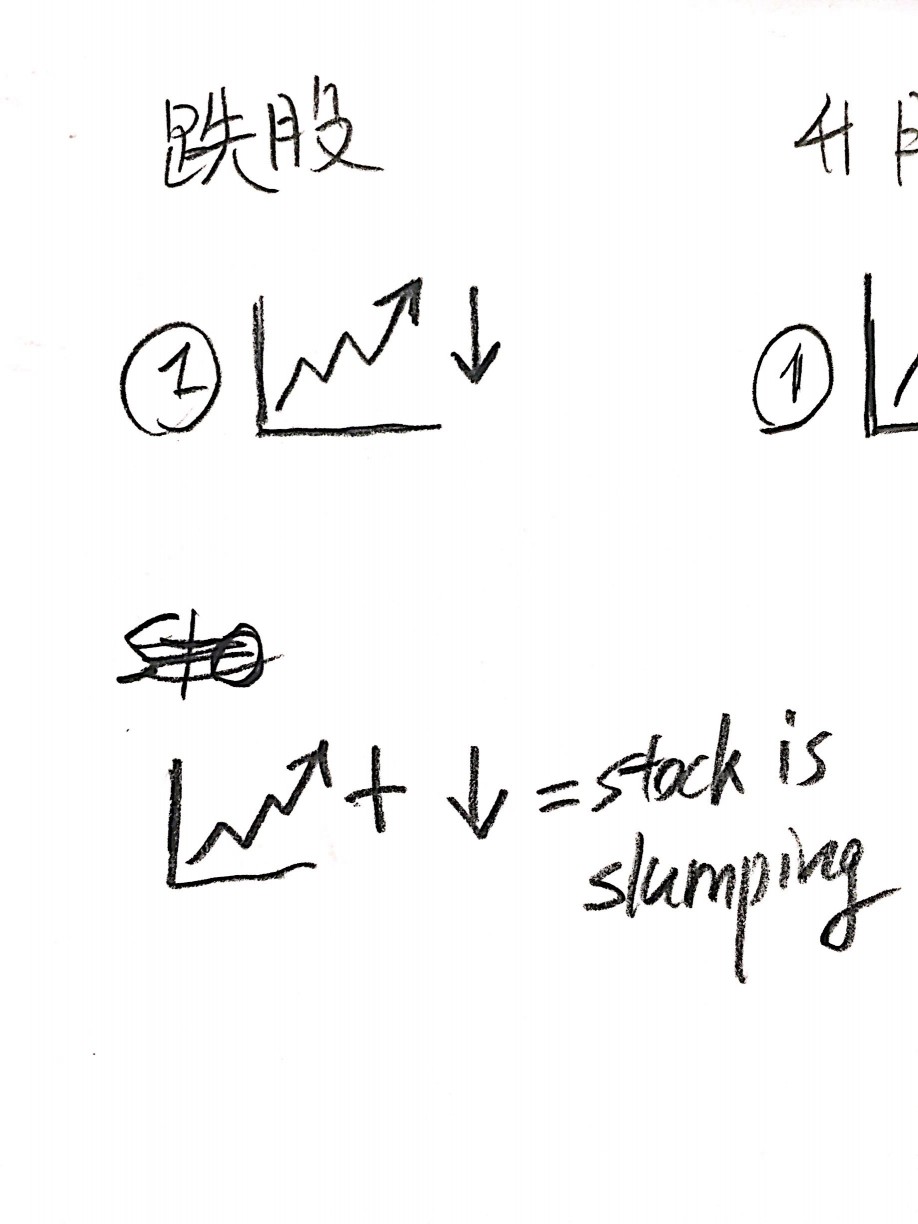 跌股
升
① ↓
①
+ ↓ = stock is
slumping